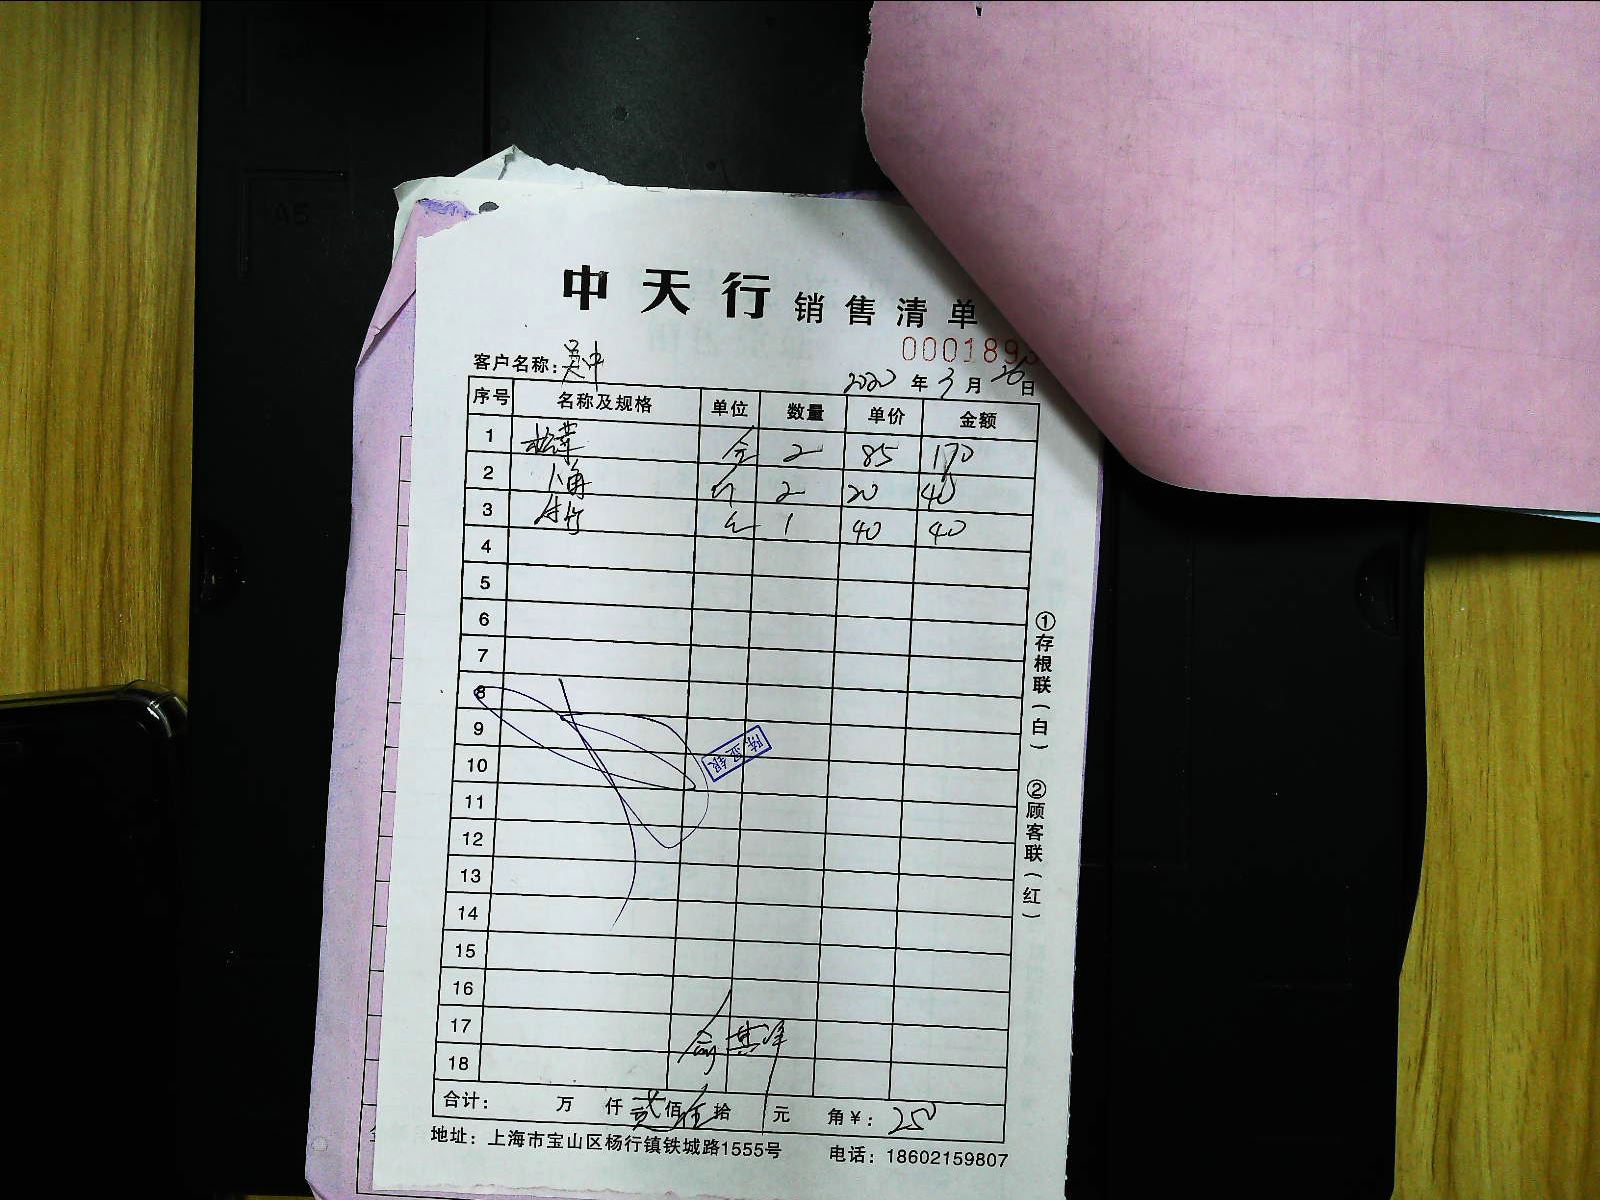 中天行 销售清单
000189
客户名称: 吴中 2020 年 3 月 26 日
序号 名称及规格 单位 数量 单价 金额
1 2 85 170
2 八角 2 20 40
3 1 40 40
4
5
6
7
8
9
10
11
12
13
14
15
16
17
18
合计: 万 仟 贰 佰 伍 拾 元 角 ¥: 250
地址: 上海市宝山区杨行镇铁城路1555号 电话: 18602159807
①存根联(白) ②顾客联(红)
陈亚银